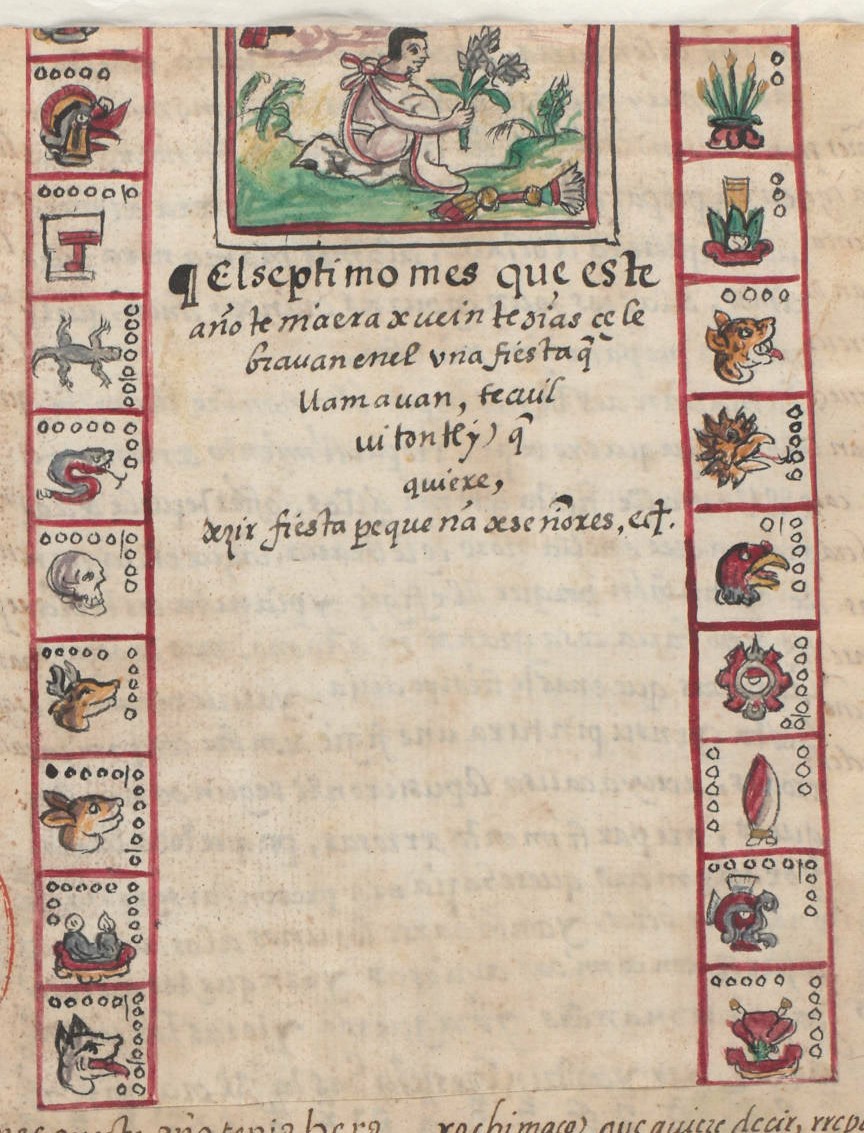 ¶ El septimo mes que este
año tenia era de veinte dias çele
bravan en el una fiesta q̃
llamavan, tecuil
vitontly) q̃
quiere,
dezir fiesta pequeña de señores, ect.
año tenia hera
xochimaco) que quiere decir,